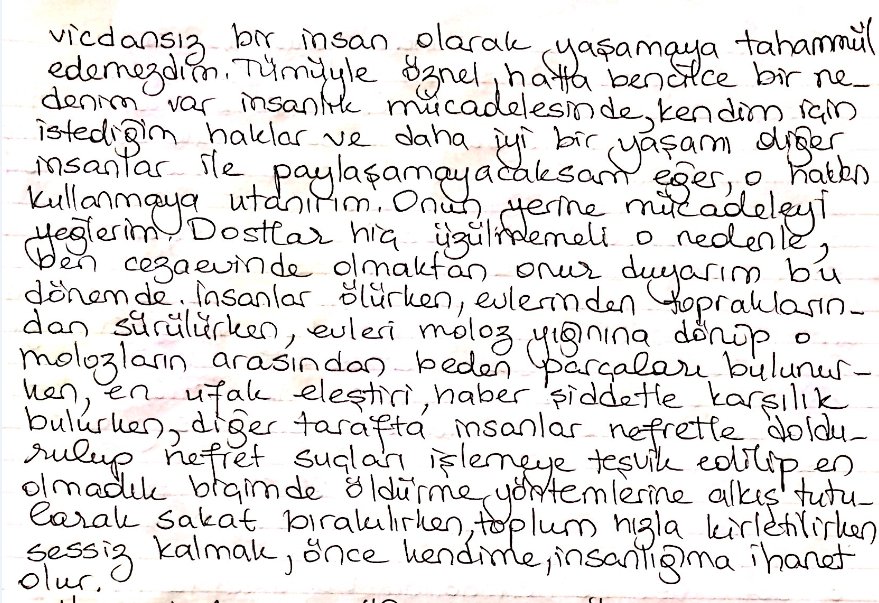 vicdansız bir insan olarak yaşamaya tahammül
edemezdim. Tümüyle öznel, hatta bencilce bir ne-
denim var insanlık mücadelesinde, kendim için
istediğim haklar ve daha iyi bir yaşamı diğer
insanlar ile paylaşamayacaksam eğer, o hakkı
kullanmaya utanırım. Onun yerine mücadeleyi
yeğlerim. Dostlar hiç üzülmemeli o nedenle,
ben cezaevinde olmaktan onur duyarım bu
dönemde. İnsanlar ölürken, evlerinden toprakların-
dan sürülürken, evleri moloz yığınına dönüp o
molozların arasından beden parçaları bulunur-
ken, en ufak eleştiri, haber şiddetle karşılık
bulurken, diğer tarafta insanlar nefretle doldu-
rulup nefret suçları işlemeye teşvik edilip en
olmadık biçimde öldürme yöntemlerine alkış tutu-
larak sakat bırakılırken, toplum hızla kirletilirken
sessiz kalmak, önce kendime, insanlığıma ihanet
olur.